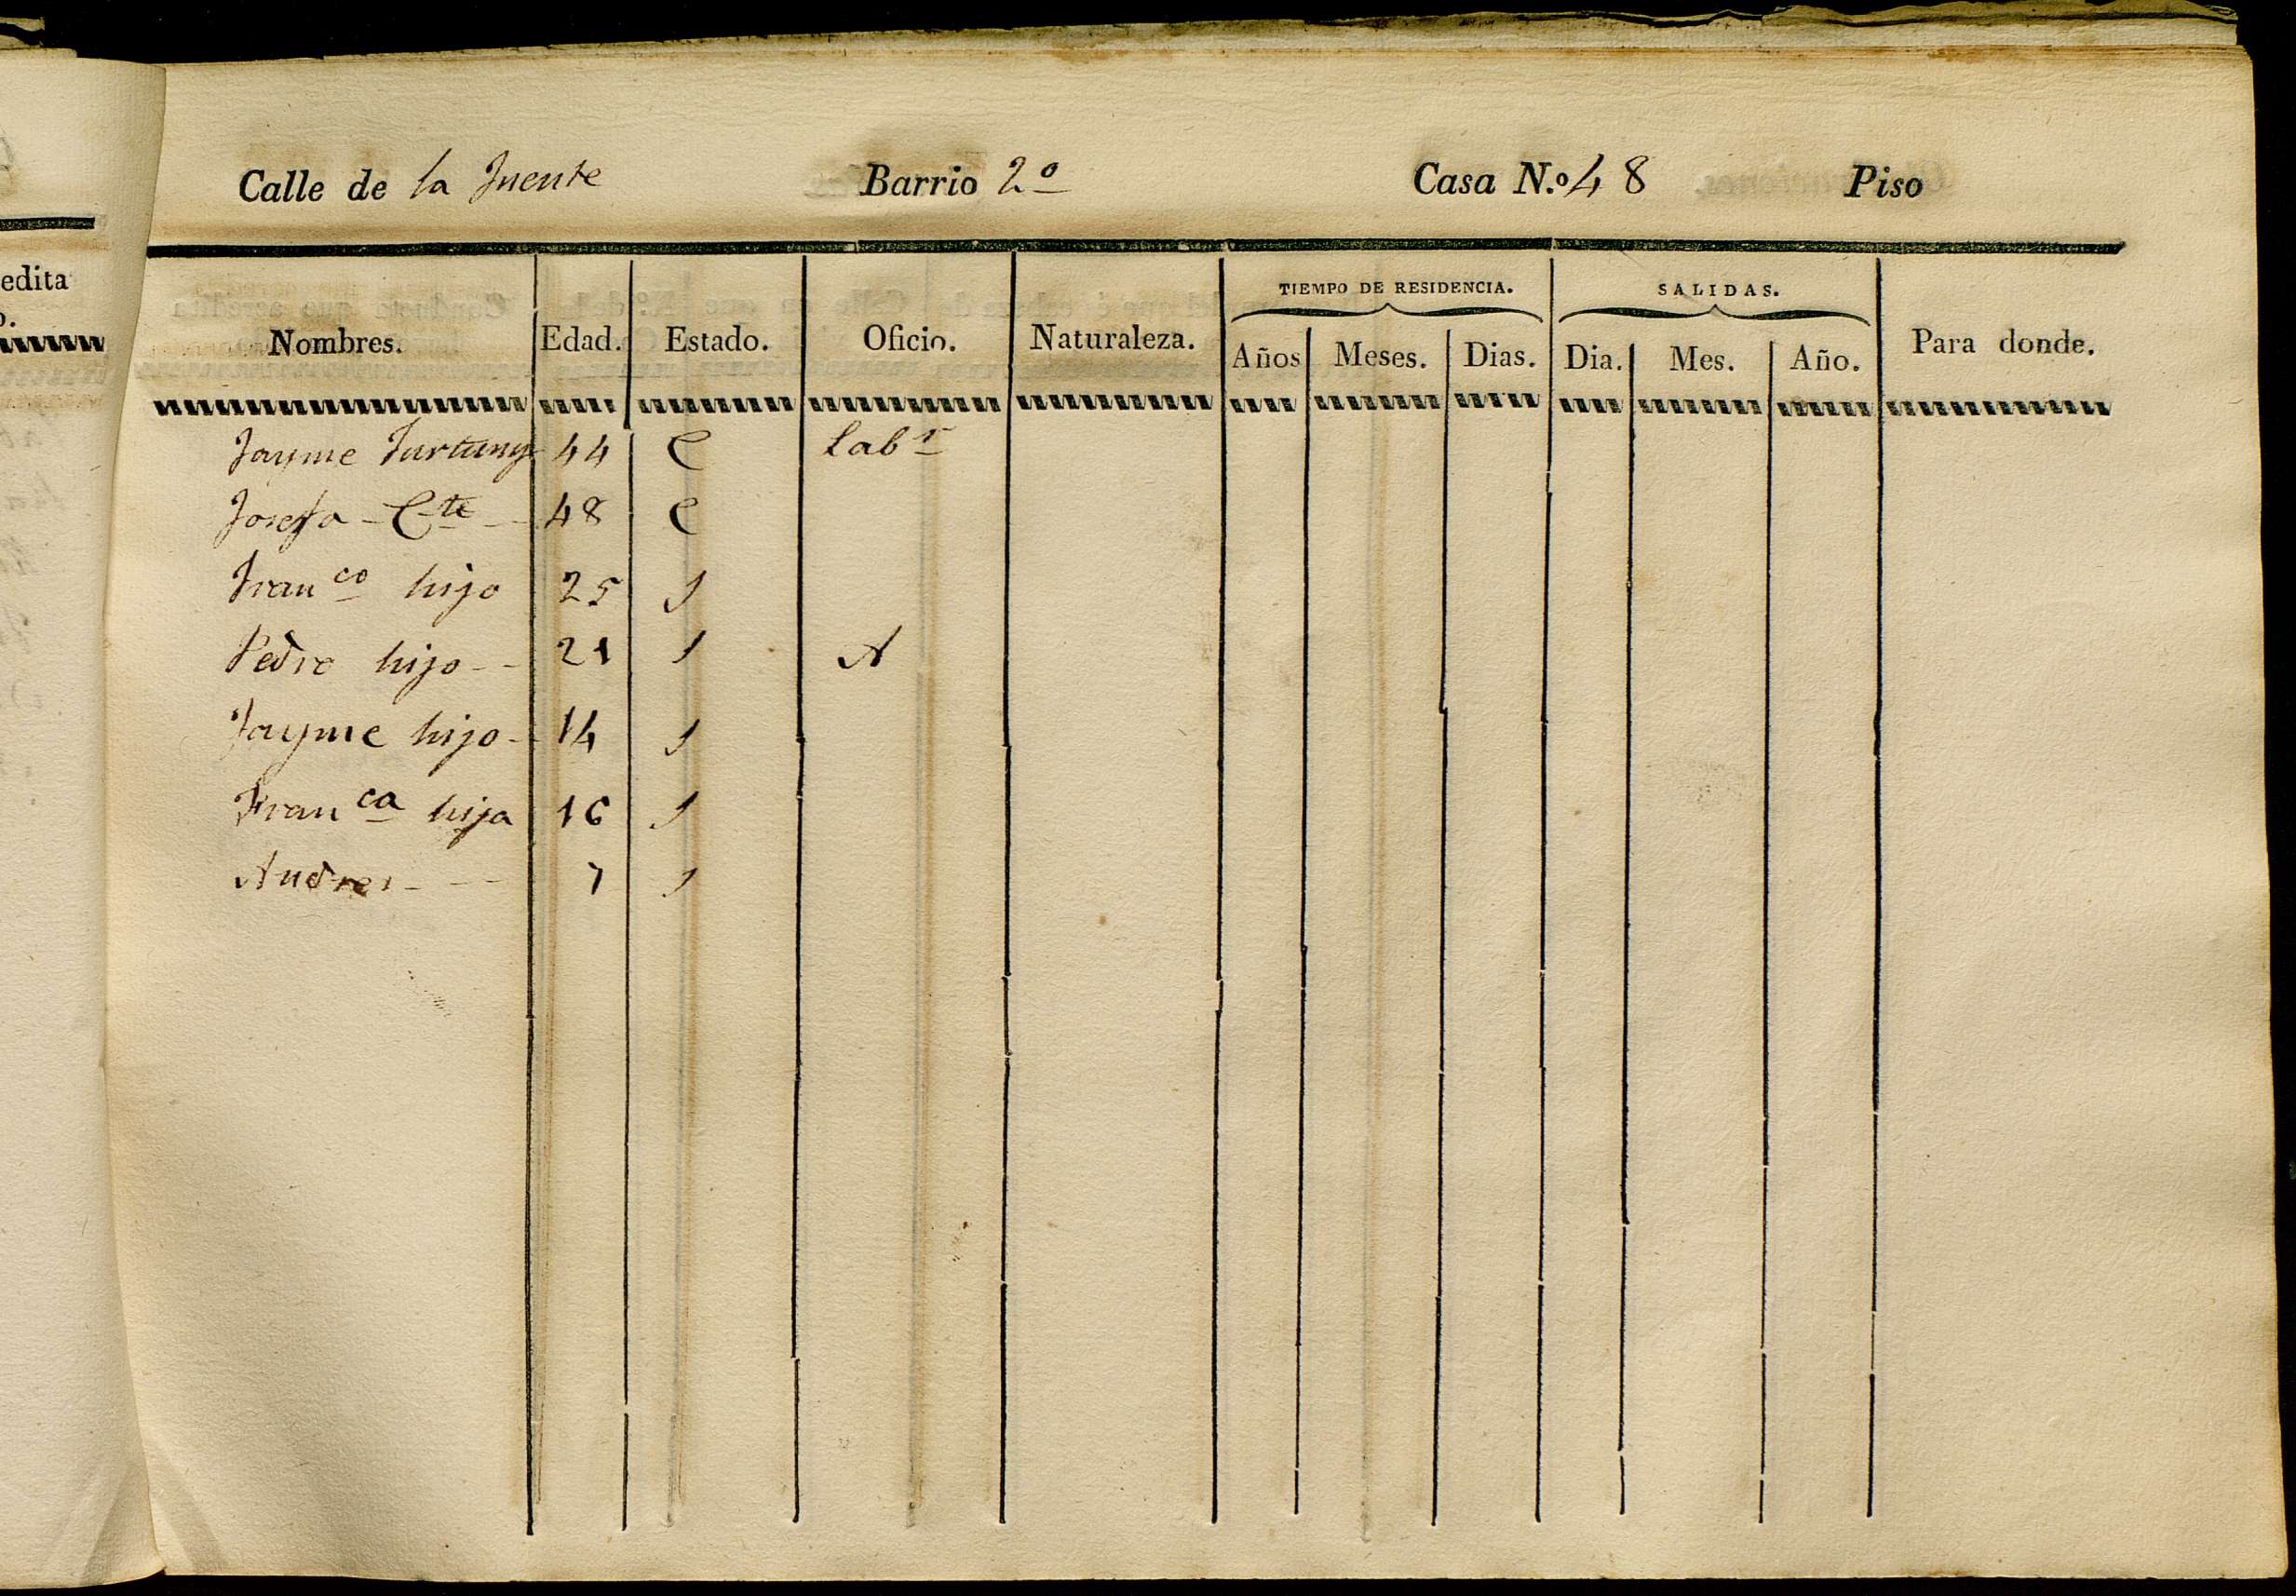 Calle de la Fuente Barrio 2º Casa N.º 48 Piso
edita
o.
TIEMPO DE RESIDENCIA. SALIDAS.
Nombres. Edad. Estado. Oficio. Naturaleza. Años Meses. Dias. Dia. Mes. Año. Para donde.
Jayme Furtuny 44 C Labʳ
Josefa - Cᵗᵉ - 48 C
Franᶜᵒ hijo 25 S
Pedro hijo - - 21 S A
Jayme hijo - 14 S
Franᶜᵃ hija 16 S
Andres - - - 7 S